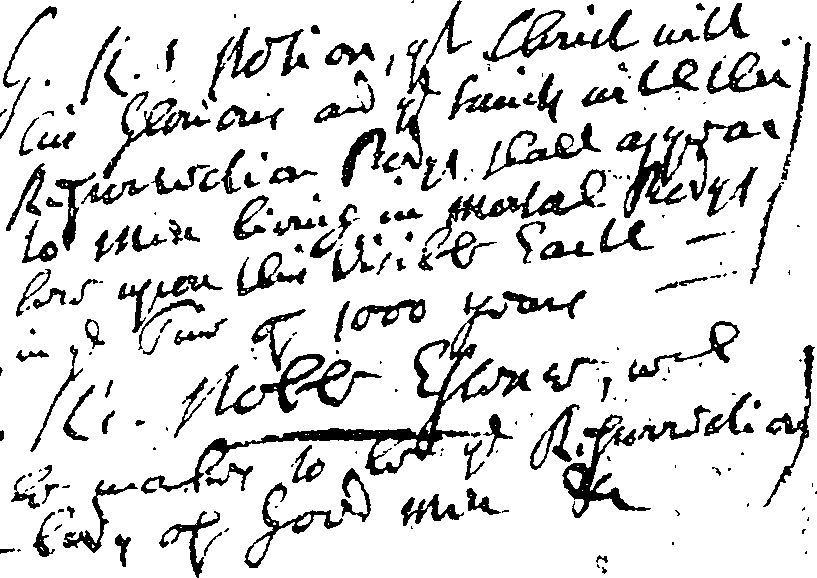 G. K.s Notion, yt Christ will
his Glorious and ye Saints with their
Resurrection Bodys shall appear
to men living in mortal Bodys
here upon this Visible Earth —
in ye Time of 1000 years —
K's. Noble Essence, wch
he makes to be ye Resurrection
body of Good men &c